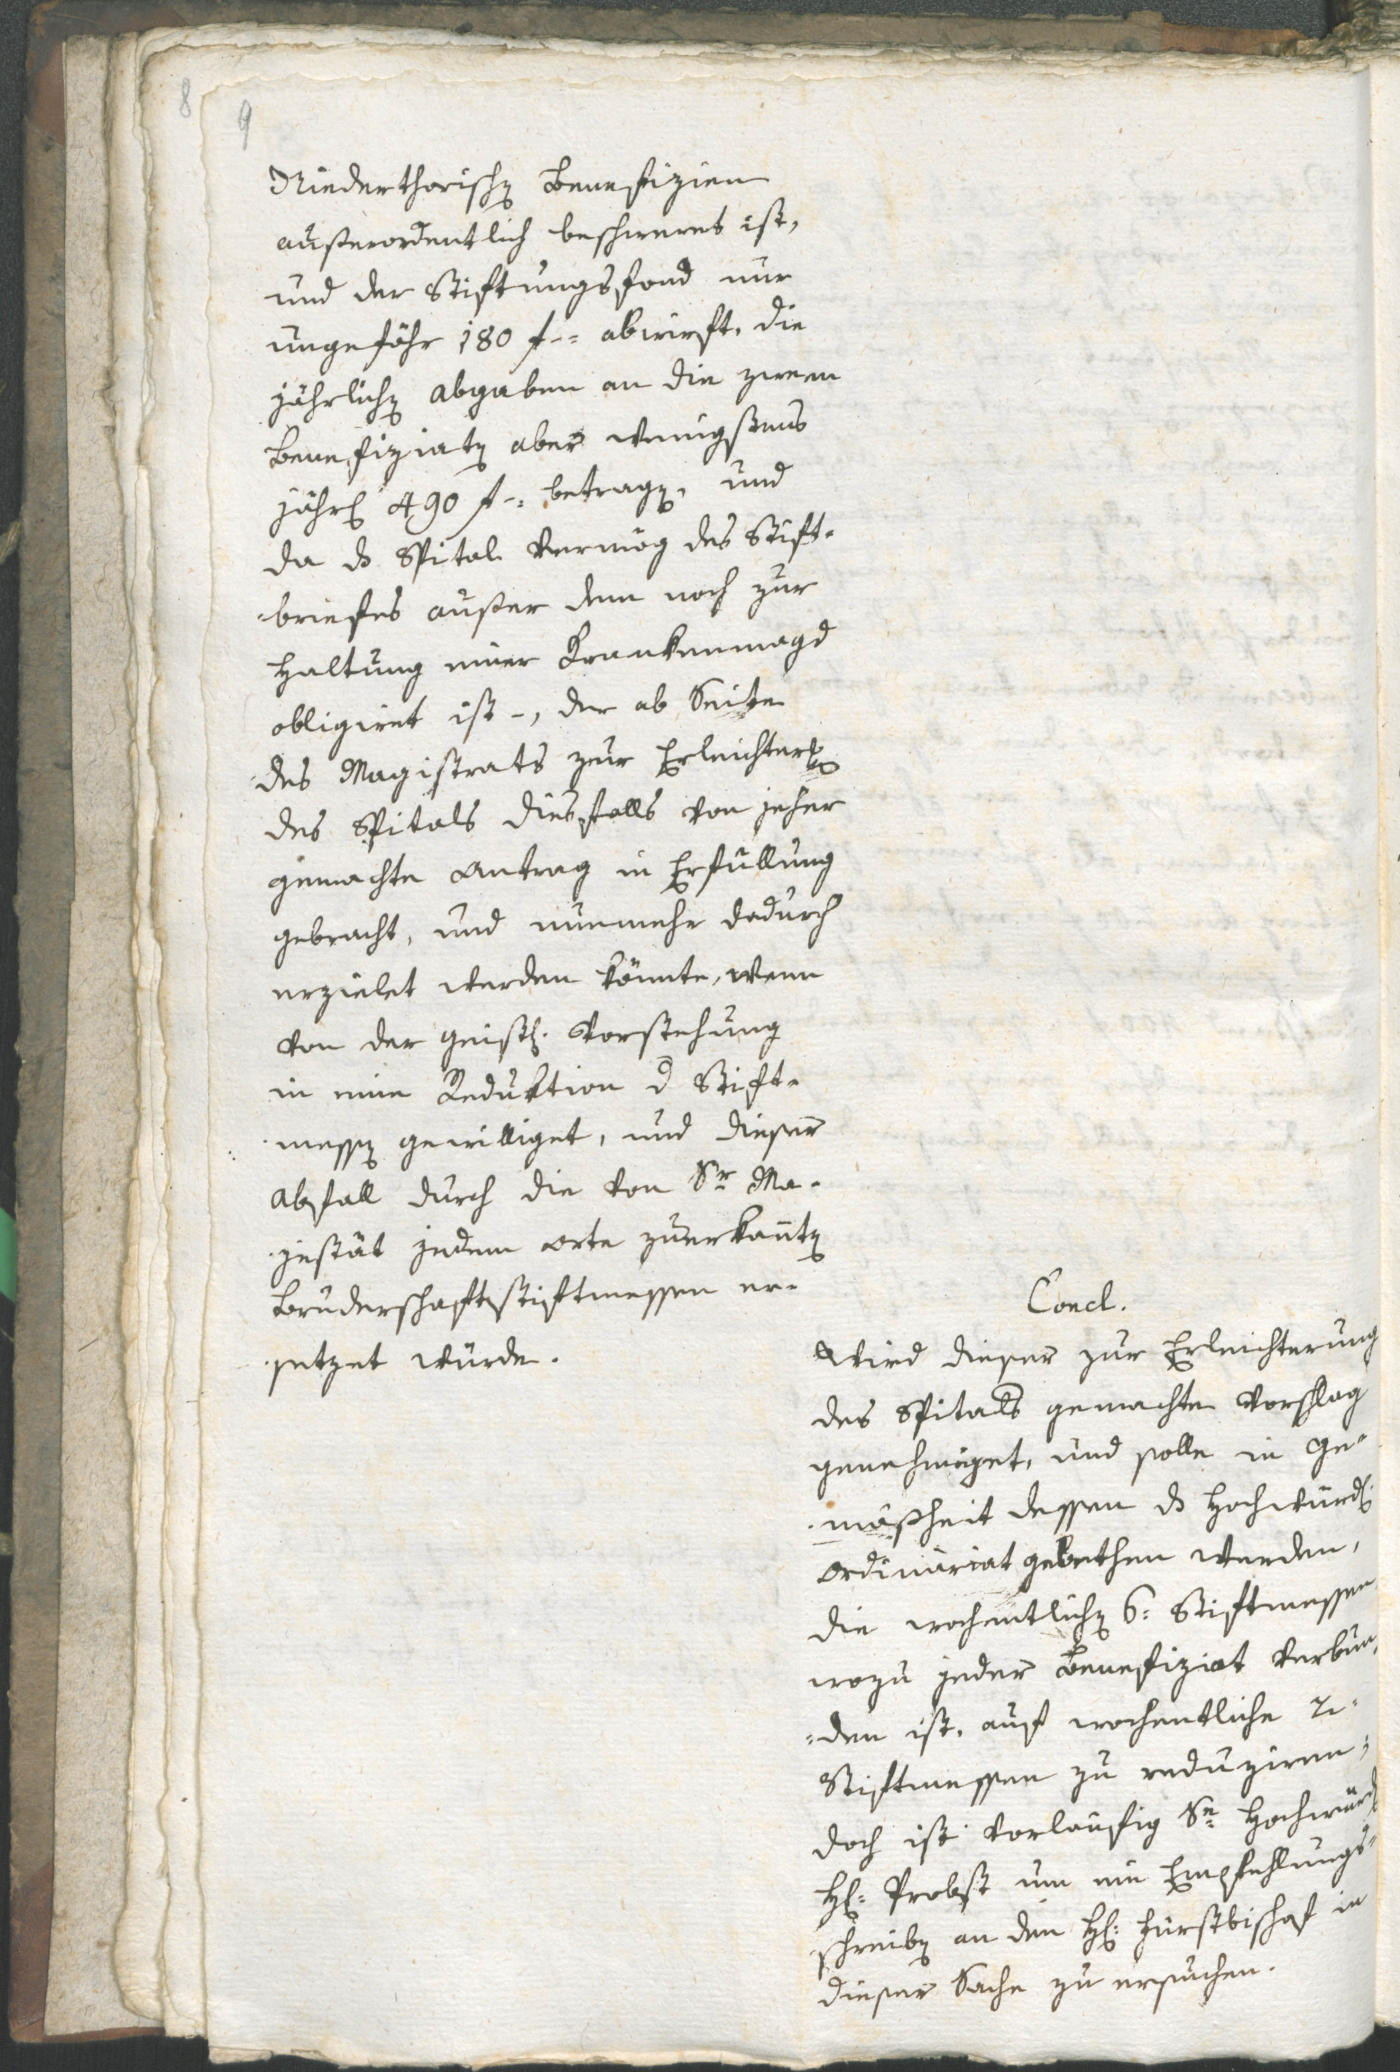 8
9
Niederthorischen Benefizien
außerordentlich beschweret ist,
und der Stiftungsfond nur
ungefähr 180 f-= abwirft, die
jährlichen Abgaben an die zween
Benefiziaten aber wenigstens
jährl 490 f-= betragen, und
da ds Spital vermög des Stift-
briefes außer dem noch zur
Haltung einer Krankenmagd
obligiret ist -, der ab Seite
des Magistrats zur Erleichterung
des Spitals diesfalls von jeher
gemachte Antrag in Erfüllung
gebracht, und nunmehr dadurch
erzielet werden könnte, wenn
von der geistl. Vorstehung
in eine Reduktion d Stift-
messen gewilliget, und dieser
Abfall durch die von Sr Ma-
jestät jedem Orte zuerkannten
Bruderschaftsstiftmessen er-
setzet würde.
Concl.
Wird dieser zur Erleichterung
des Spitals gemachte Vorschlag
genehmiget, und solle in Ge-
mäßheit dessen ds Hochwürdl
Ordinariat gebethen werden,
die wochentlichen 6= Stiftmessen
wozu jeder Benefiziat verbun-
=den ist, auf wochentliche 2=
Stiftmessen zu reduziren,
doch ist vorläufig Sr Hochwürd
Hl= Probst um ein Empfehlungs-
schreiben an den Hl= Fürstbischof in
dieser Sache zu ersuchen.